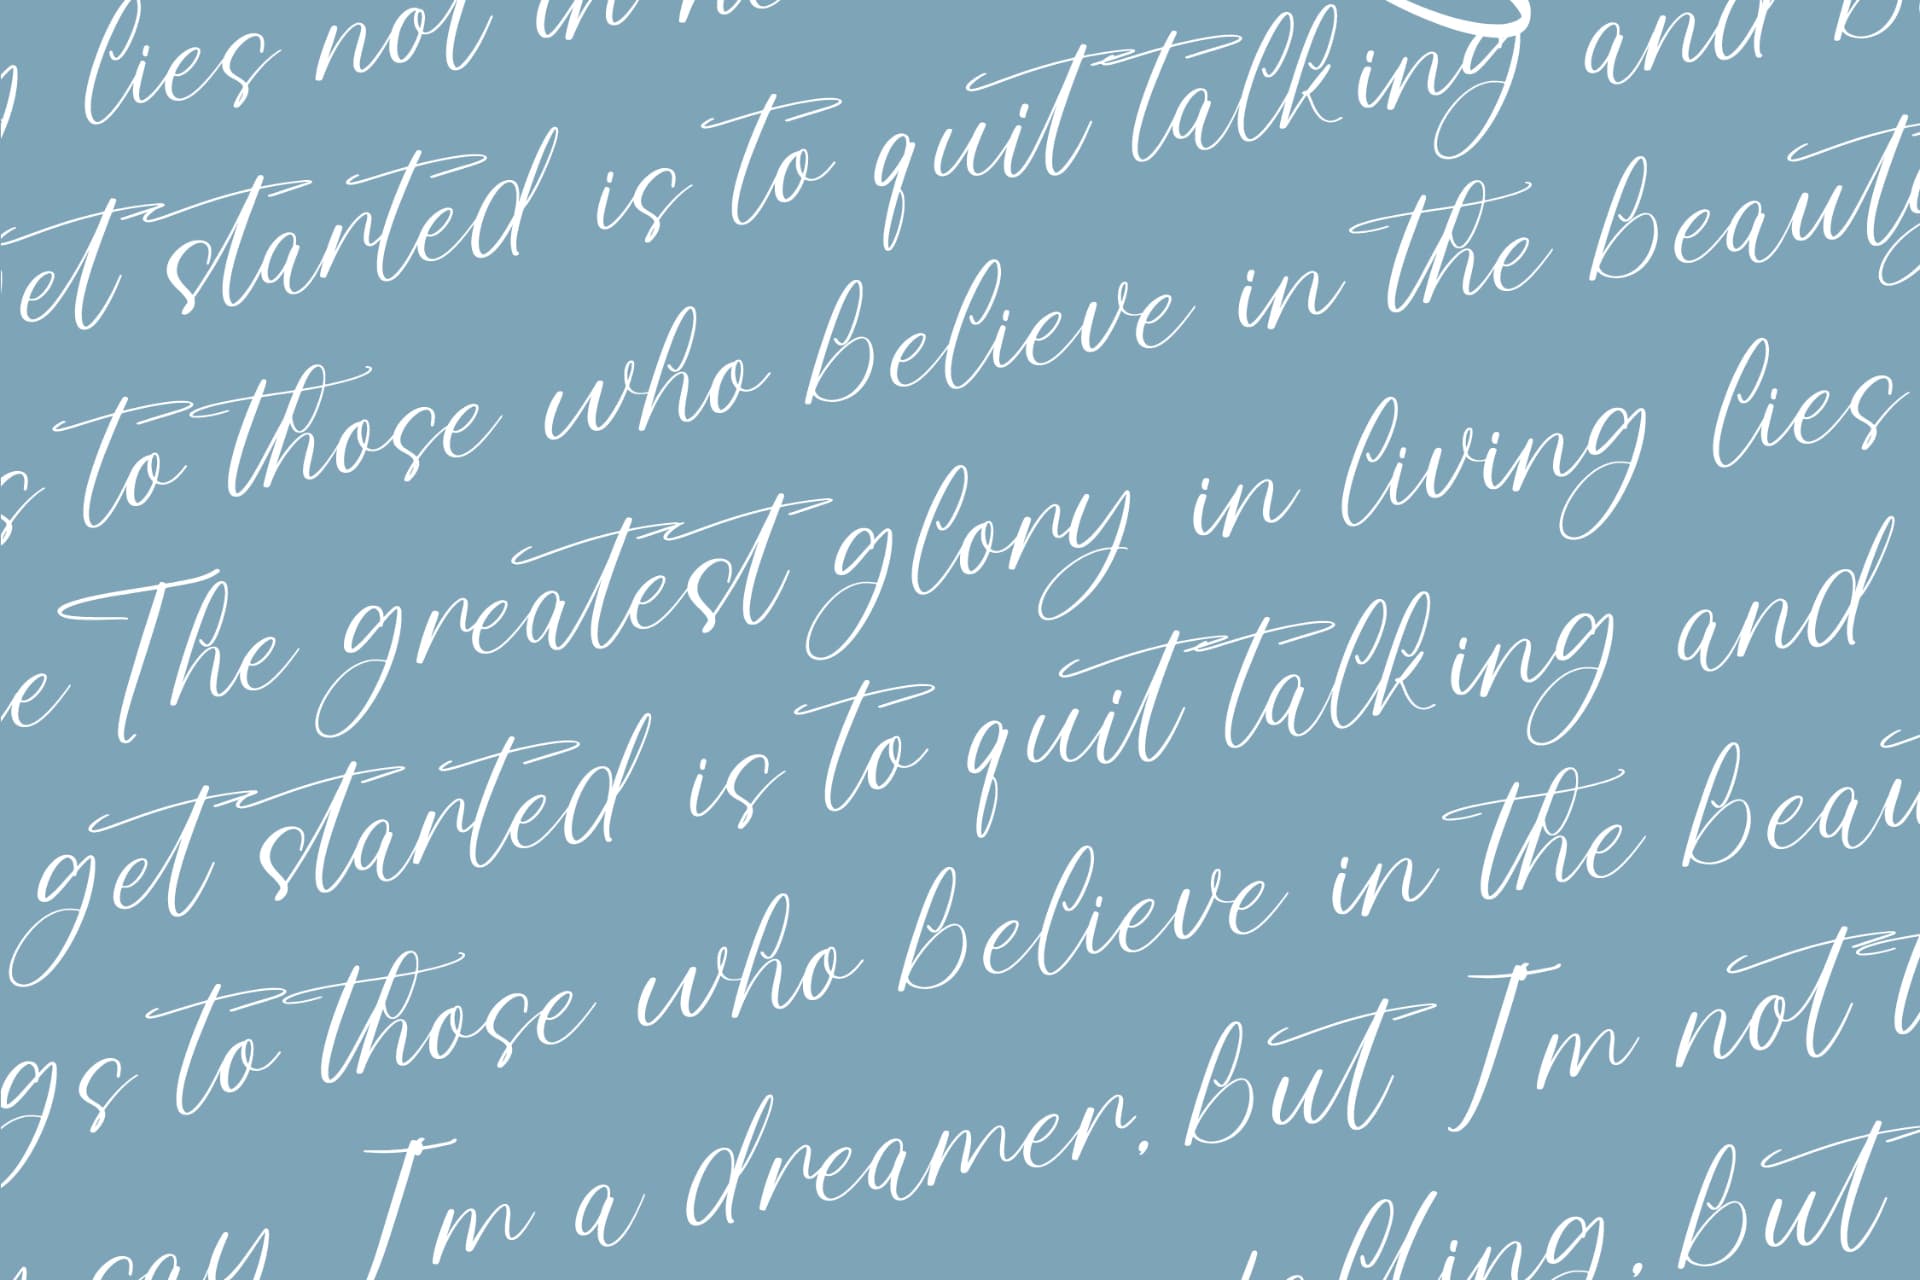 lies not in ne
et started is to quit talking and b
s to those who believe in the beauty
e The greatest glory in living lies
get started is to quit talking and
gs to those who believe in the beau
I'm a dreamer, but I'm not t
say I'm a
lling, but